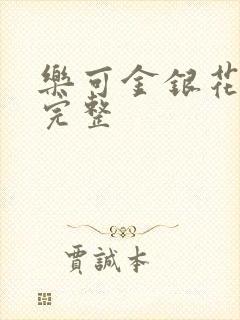 樂可金銀花
完整
賈誠本